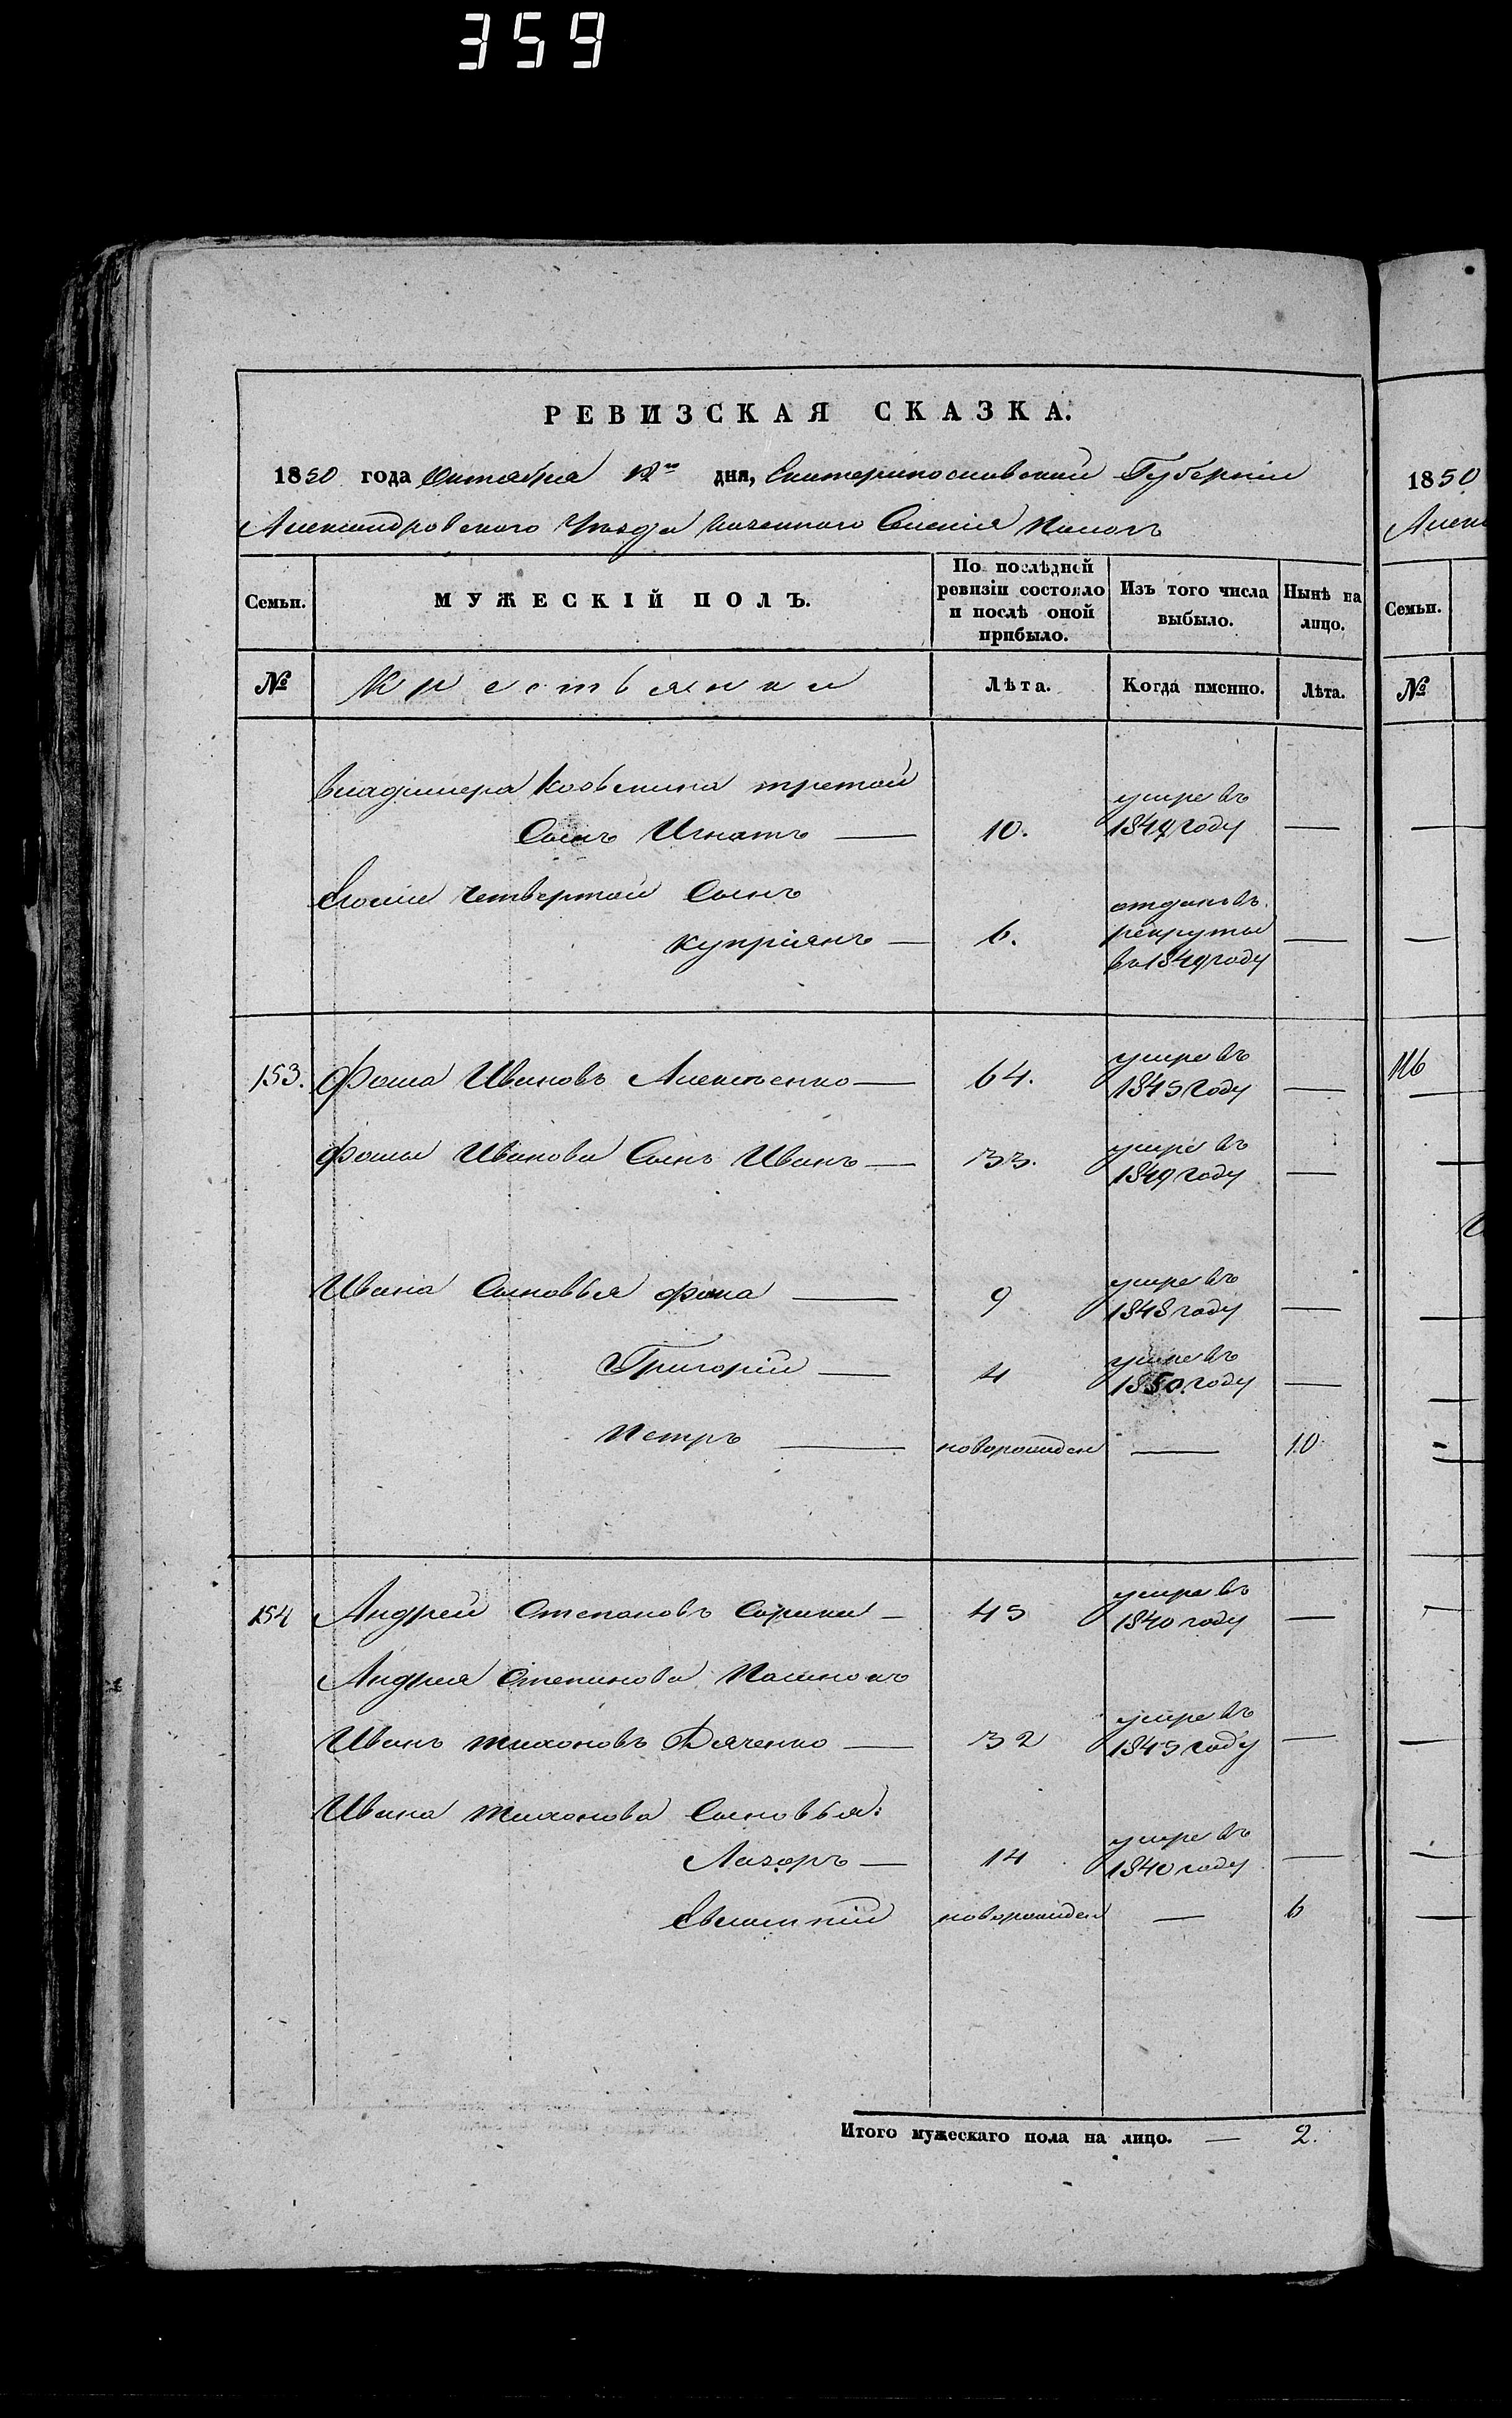 359
РЕВИЗСКАЯ СКАЗКА.
1850 года Октября дня, Екатеринославской Губерніи
Александровского Уезда казенного Селенія Пологъ
Семьи.
МУЖЕСКІЙ ПОЛЪ.
По послѣдней ревизіи состояло и послѣ оной прибыло.
Изъ того числа выбыло.
Нынѣ на лицо.
№ Крестьянки Лѣта. Когда именно. Лѣта.
Владимера третой умре въ
Сынъ Игнатъ — 10. 1849 году —
Его же четвертой Сынъ отданъ въ
Купріянъ — 6. рекруты —
въ 1849 году
153. Фома Ивановъ Алексеенко — 64. умре въ 1845 году —
Фомы Иванова Сынъ Иванъ — 33. умре въ 1849 году —
Ивана Сыновья Фома — 9 умре въ 1848 году —
Григорій — 4 умре въ 1850 году —
Петръ — новорожден — 10
154 Андрей Степановъ Сорика — 45 умре въ 1840 году —
Андрея Степанова
Иванъ Тихоновъ Дяченко — 32 умре въ 1845 году —
Ивана Тихонова Сыновья:
Лазоръ — 14 умре въ 1840 году —
новорожден — 6
Итого мужескаго пола на лицо. — 2.
1850
Семьи.
№
116